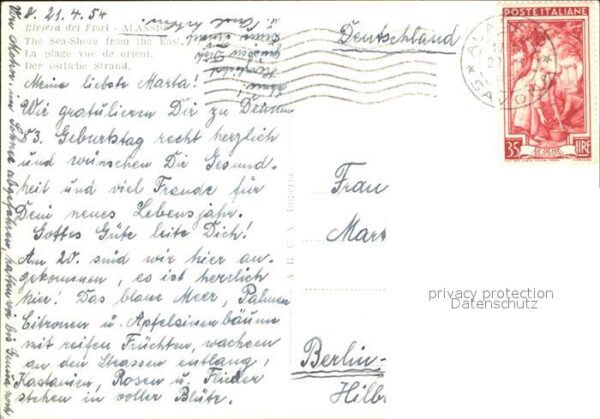 d. 21.4.54
Riviera dei Fiori - ALASSIO
The Sea-Shore from the East
La plage vue de orient.
Der östliche Strand.
Meine liebste Marta!
Wir gratulieren Dir zu Deinem
53. Geburtstag recht herzlich
und wünschen Dir Gesund-
heit und viel Freude für
Dein neues Lebensjahr.
Gottes Güte leite Dich!
Am 20. sind wir hier an-
gekommen, es ist herrlich
hier! Das blaue Meer, Palmen
Citronen u. Apfelsinenbäume
mit reifen Früchten, wachsen
an den Strassen entlang,
Kastanien, Rosen u. Flieder
stehen in voller Blüte.
abgefahren, hatten wir bis Genua
ARCA Imperia
Deutschland
Frau
Mart
Berlin-
Hilb
POSTE ITALIANE
35 LIRE
SAVONA
privacy protection
Datenschutz